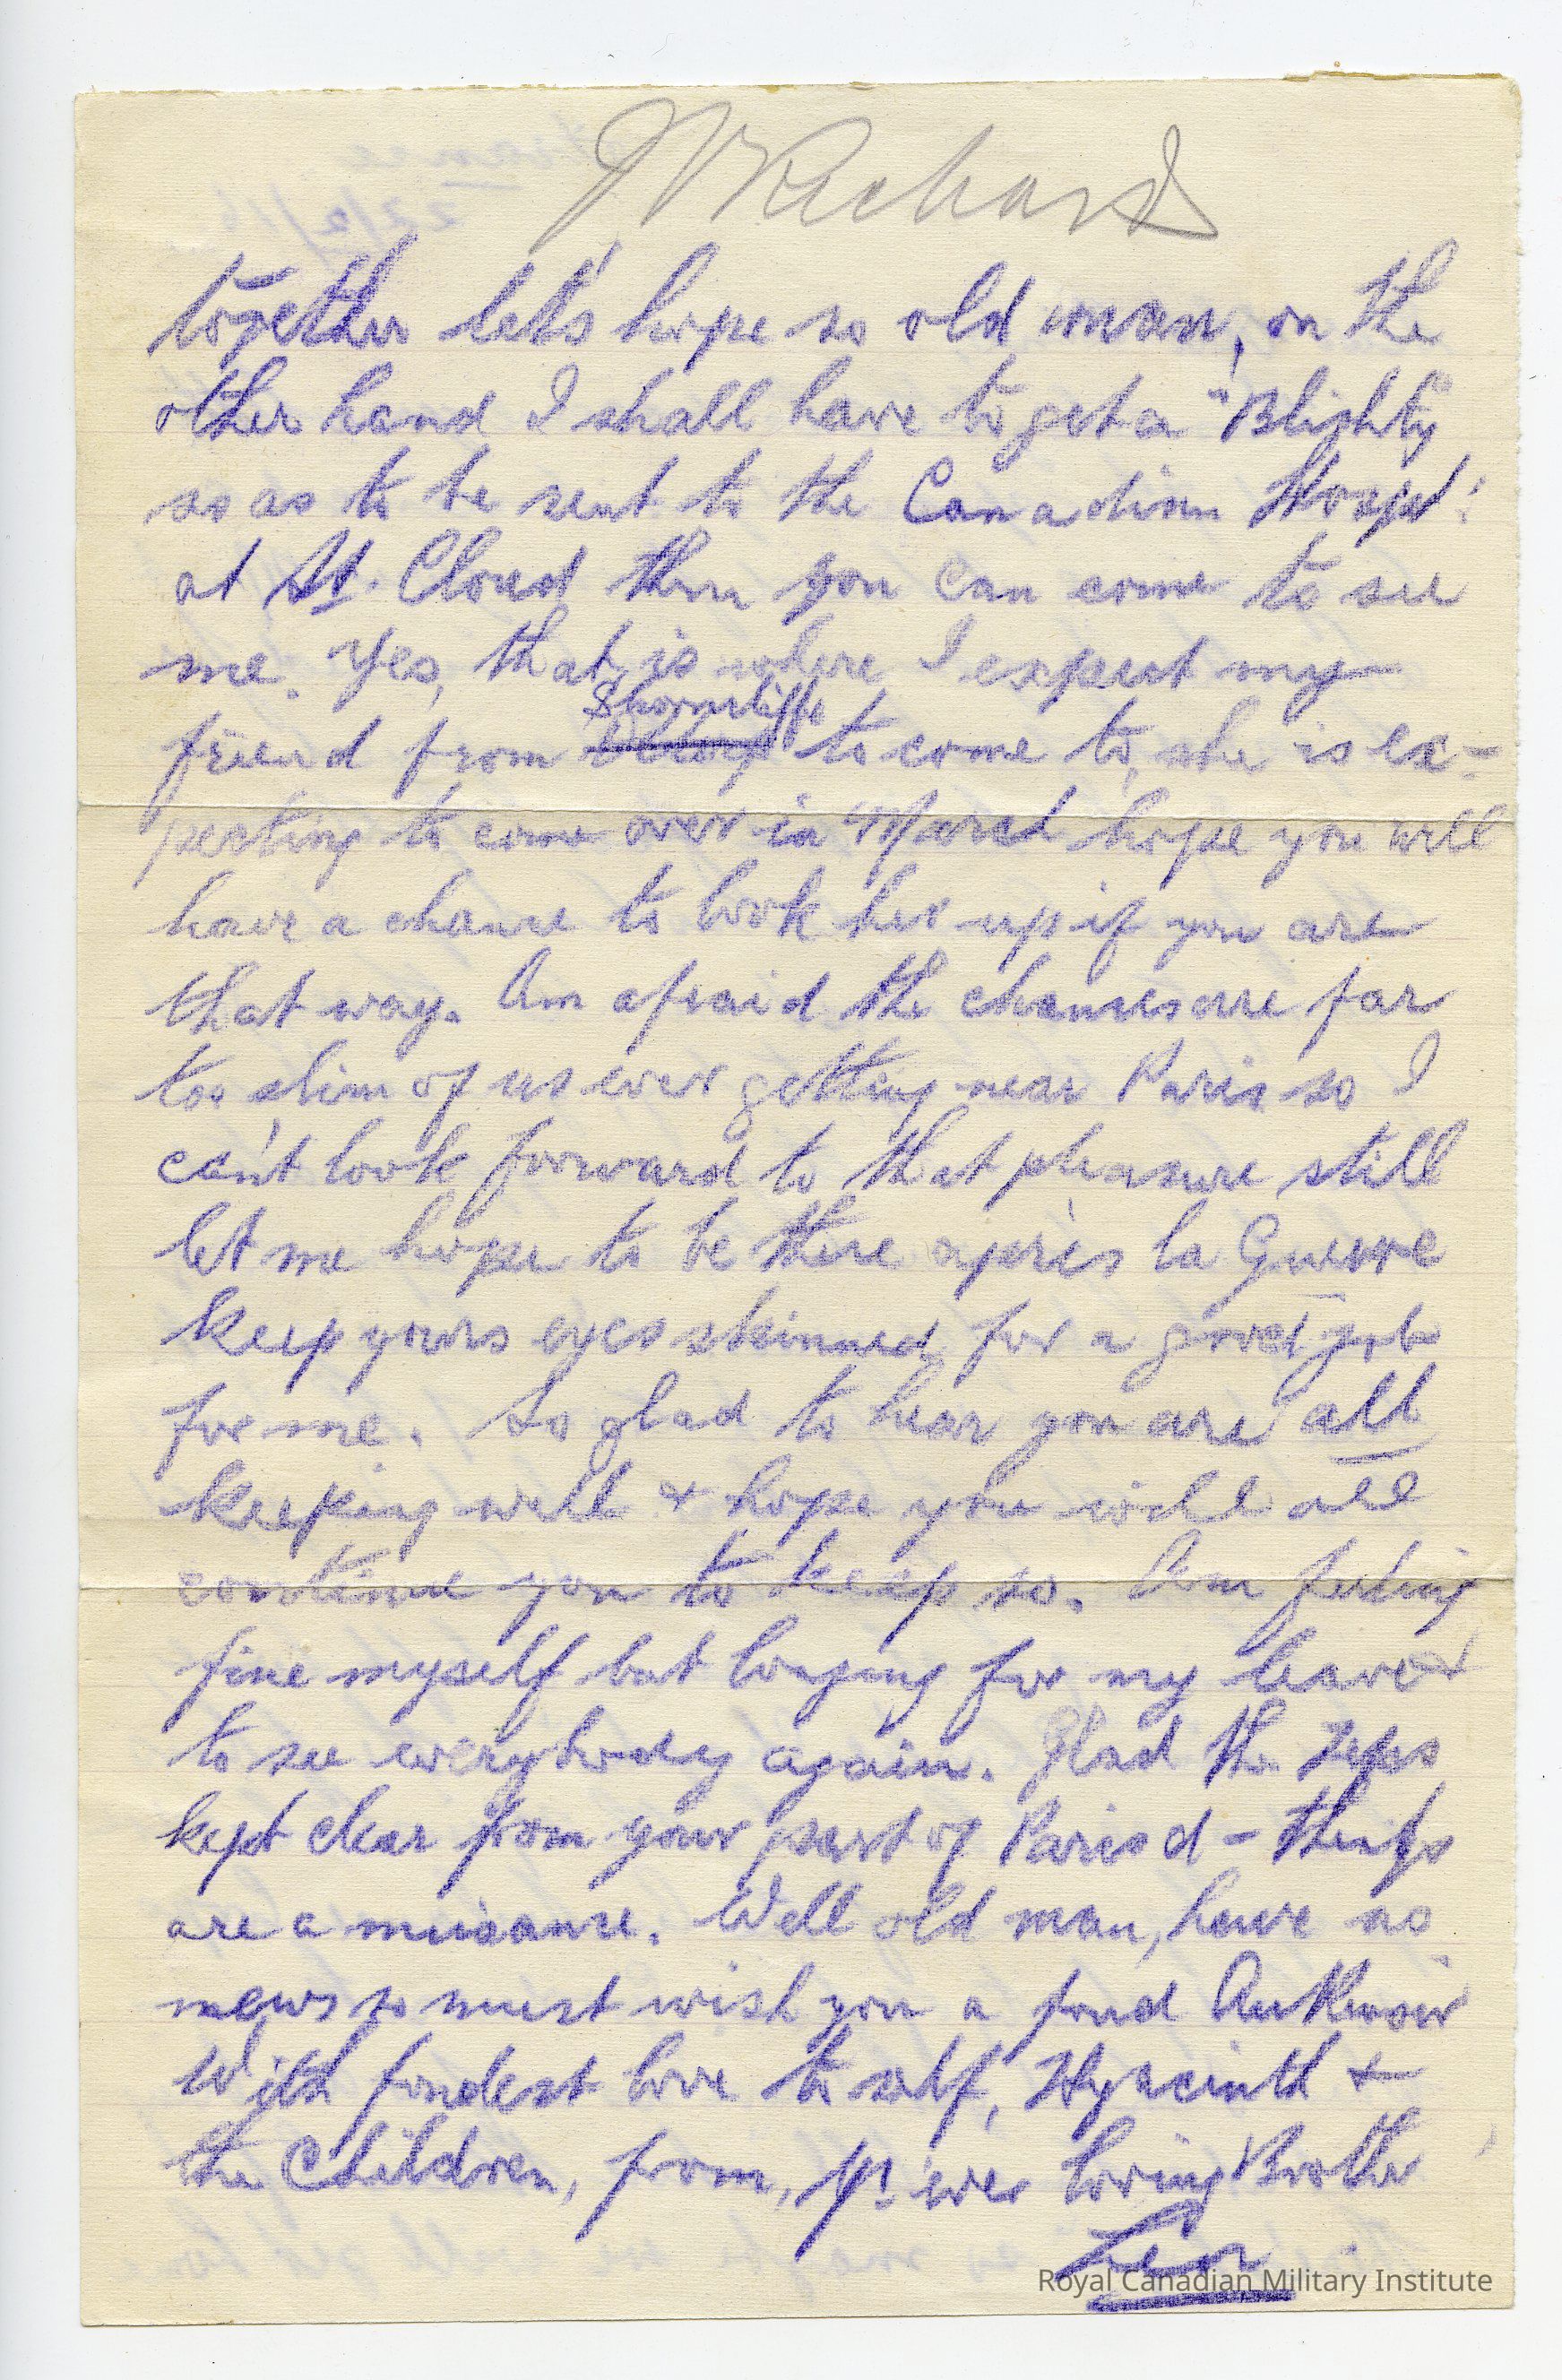 together let's hope so old man, on the
other hand I shall have to get a "Blighty"
so as to be sent to the Canadian Hospl:
at St. Cloud then you can come to see
me. Yes, that is where I expect my
Shorncliffe
friend from to come to, she is ex-
pecting to come over in March hope you will
have a chance to look her up if you are
that way. Am afraid the chances are far
too slim of us ever getting near Paris so I
can't look forward to that pleasure still
let me hope to be there après la Guerre
keep yours eyes skinned for a good job
for me. So glad to hear you are all
keeping well & hope you will all
continue you to keep so. Am feeling
fine myself but longing for my leave &
to see everybody again. Glad the Zeps
kept clear from your part of Paris d- things
are a nuisance. Well old man, have no
news so must wish you a fond Au Revoir
With fondest love to self, Hyacinth &
the Children, from, yr. ever loving Brother
Leon
Royal Canadian Military Institute